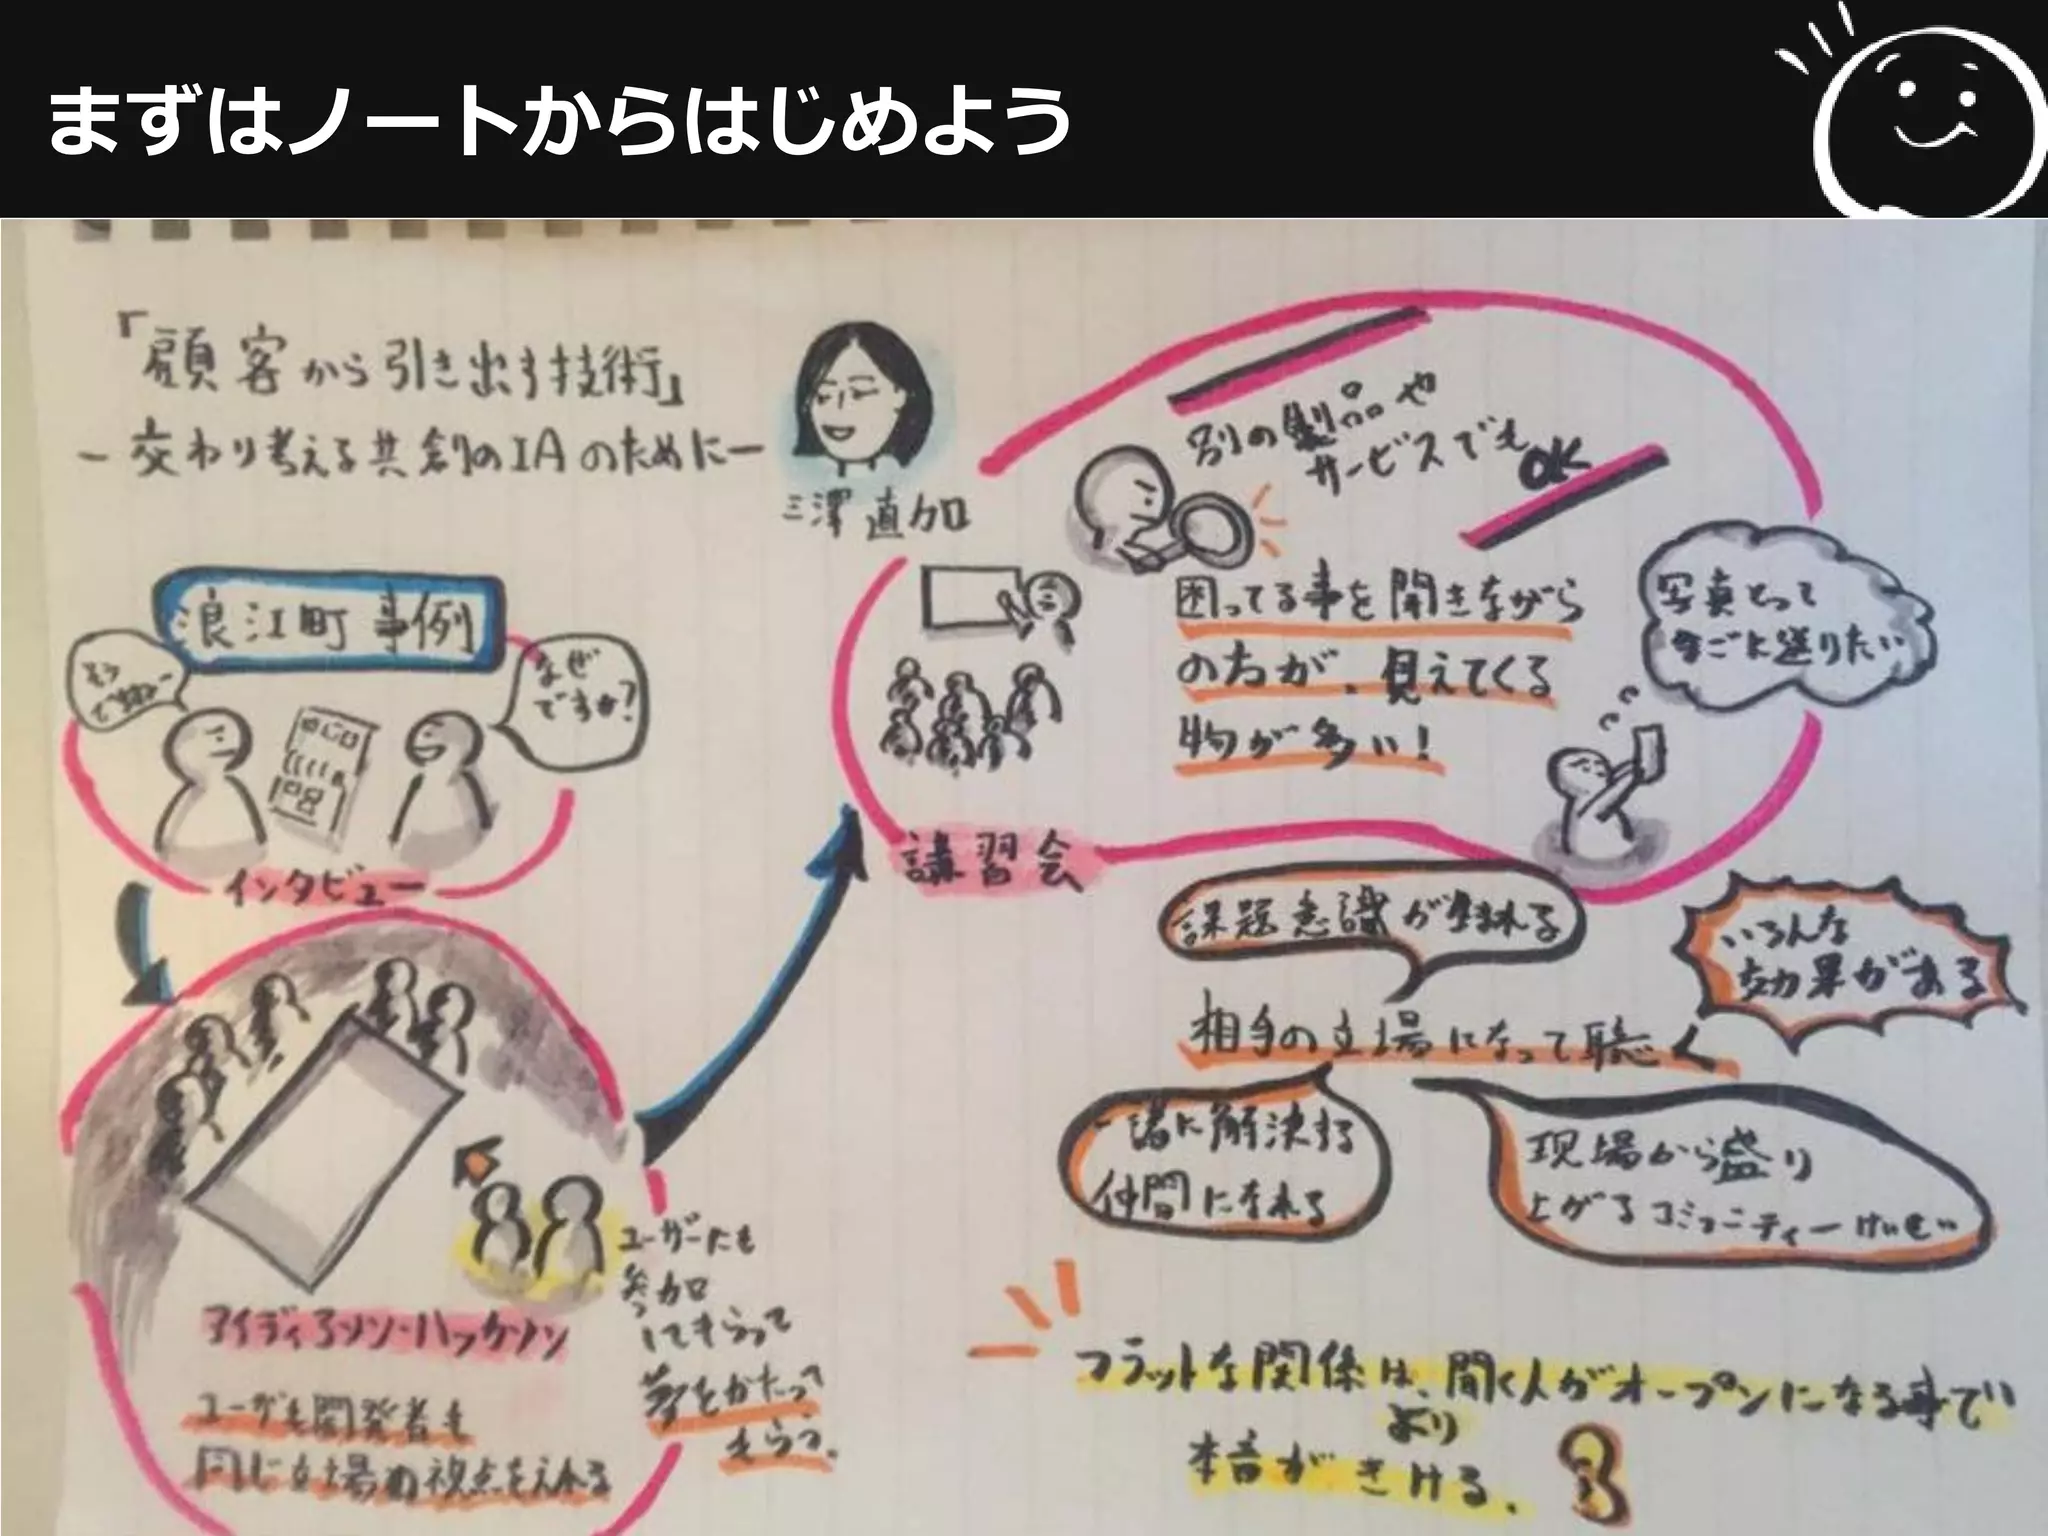 まずはノートからはじめよう
「顧客から引き出す技術」
－交わり考える共創のIAのために－
三澤 直加
浪江町 事例
そう
ですねー
なぜ
ですか?
インタビュー
アイディアソン・ハッカソン
ユーザも開発者も
同じ立場の視点をえれる
ユーザーにも
参加
してもらって
夢をかたって
もらう。
別の製品や
サービスでも
OK
困ってる事を聞きながら
の方が、見えてくる
物が多い!
写真とって
まごに送りたい
講習会
課題意識が生まれる
いろんな
効果がある
相手の立場になって聴く
一緒に解決する
仲間になれる
現場から盛り
上がるコミュニティーけいせい
フラットな関係は、聞く人がオープンになる事で
より
本音がきける。